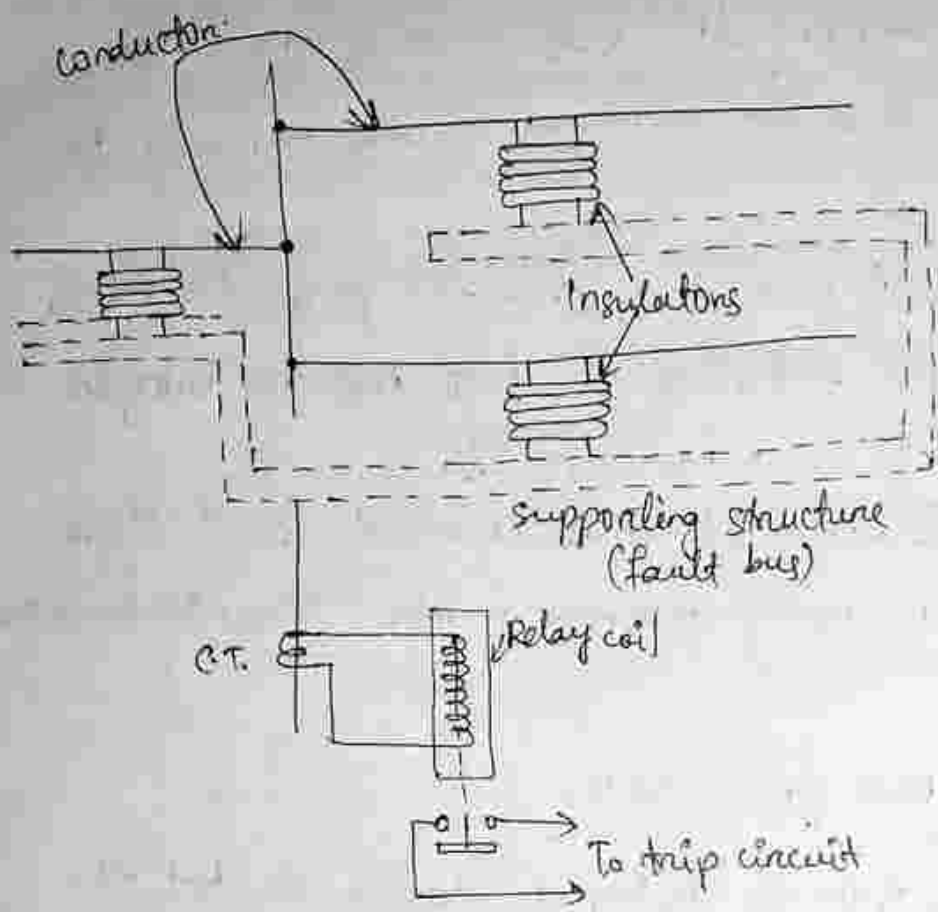 conductor.
Insulators
supporting structure
(fault bus)
C.T.
Relay coil
To trip circuit